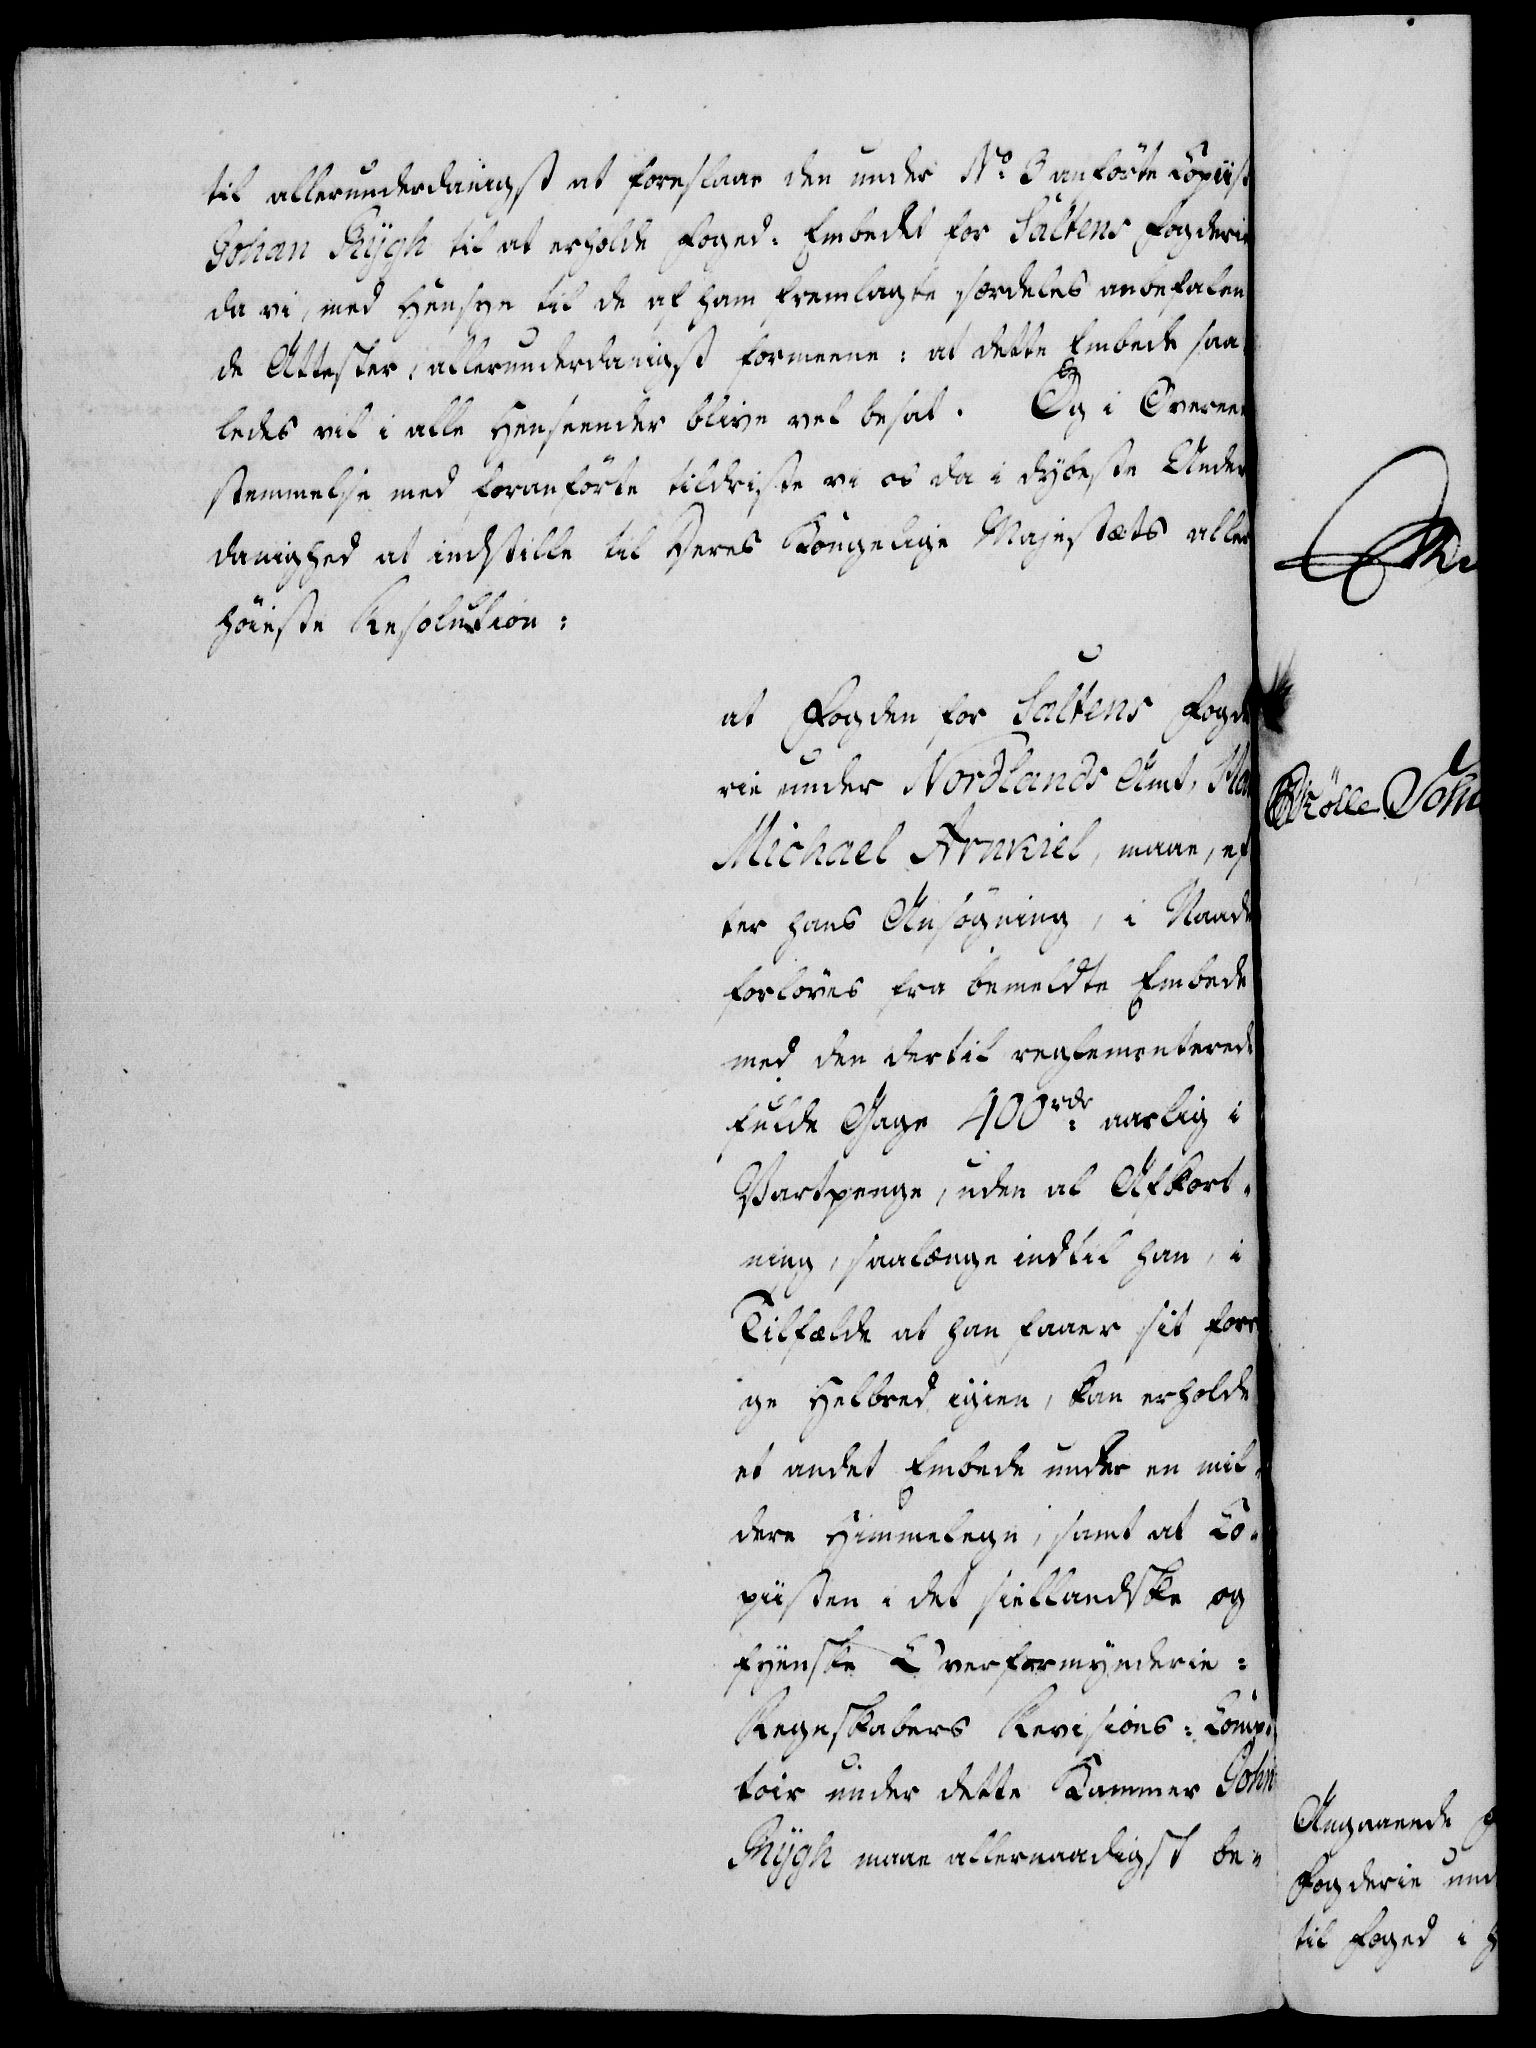 til allerunderdanigst at foreslaae den under No 3 anförte Copiist
Johan Rÿgh til at erholde Foged-Embedet for Saltens Fogderie
da vi, med Hensyn til de af ham fremlagte særdeles anbefalen
de Attester, allerunderdanigst formeene: at dette Embede saa
ledes vil i alle Henseender blive vel besat. Og i Overeens
stemmelse med foranförte tildriste vi os da i dÿbeste Under
danighed at indstille til Deres Kongelige Majestæts aller
höieste Resolution:
at Fogden for Saltens Fogde
rie under Nordlands Amt,
Michael Arnkiel, maae, ef
ter hans Ansögning, i Naade
forlöves fra bemeldte Embede
med den dertil reglementerede
fulde Gage 400 rdr: aarlig i
Vartpenge, uden al Afkort-
ning, saalænge indtil han, i
Tilfælde at han faaer sit forr
ige Helbred igien, kan erholde
et andet Embede under en mil-
dere Himmelegn, samt at Co-
piisten i det siellandske og
fyenske Overformÿnderie-
Regnskabers Revisions-Comp-
toir under dette Kammer Johan
Rÿgh maae allernaadigst be-
Angaaende
Fogderie und
til Foged i